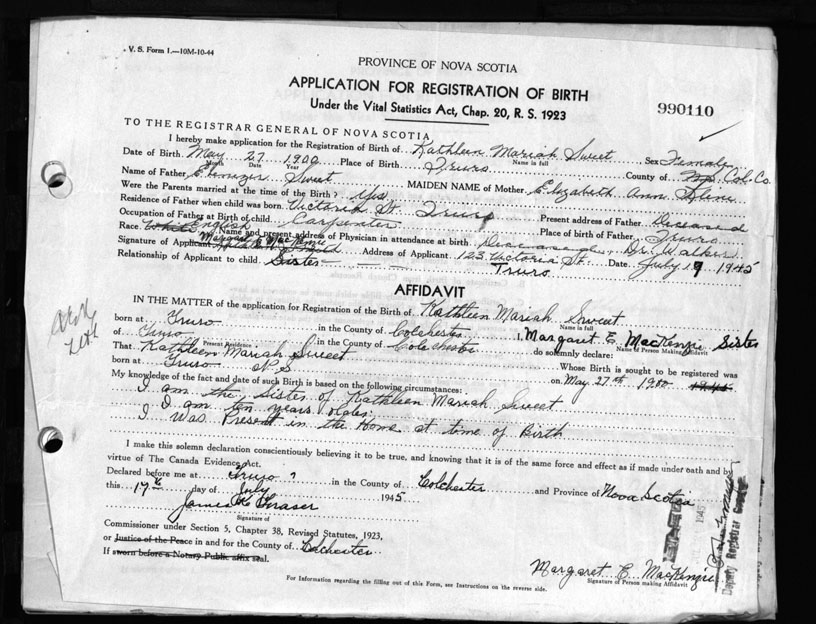 V. S. Form 1.—10M-10-44
PROVINCE OF NOVA SCOTIA
APPLICATION FOR REGISTRATION OF BIRTH
Under the Vital Statistics Act, Chap. 20, R. S. 1923
990110
TO THE REGISTRAR GENERAL OF NOVA SCOTIA
I hereby make application for the Registration of Birth of Kathleen Mariah Sweet Sex Female
Name in full
Date of Birth May 27 1900 Place of Birth Truro County of Col. Co.
Month Date Year
Name of Father Ebenezer Sweet MAIDEN NAME of Mother Elizabeth Ann
Were the Parents married at the time of the Birth? Yes
Residence of Father when child was born Victoria St. Truro Present address of Father Deceased
Occupation of Father at Birth of child Carpenter Place of birth of Father Truro
Race White English Name and present address of Physician in attendance at birth Deceased Dr. Walker
Signature of Applicant Margaret E MacKenzie Address of Applicant 123 Victoria St. Truro Date July 19 1945
Relationship of Applicant to child Sister
AFFIDAVIT
IN THE MATTER of the application for Registration of the Birth of Kathleen Mariah Sweet
Name in full
born at Truro in the County of Colchester I, Margaret E. MacKenzie Sister
Name of Person Making Affidavit
of Truro in the County of Colchester do solemnly declare:
Present Residence
That Kathleen Mariah Sweet Whose Birth is sought to be registered was
born at Truro N.S on May 27th 1900
My knowledge of the fact and date of such Birth is based on the following circumstances:
I am the Sister of Kathleen Mariah Sweet
I am ten years older.
I was Present in the Home at time of Birth
I make this solemn declaration conscientiously believing it to be true, and knowing that it is of the same force and effect as if made under oath and by
virtue of The Canada Evidence Act.
Declared before me at Truro in the County of Colchester and Province of Nova Scotia
this 17th day of July 1945
James Fraser
Signature of
Commissioner under Section 5, Chapter 38, Revised Statutes, 1923,
or Justice of the Peace in and for the County of Colchester
If sworn before a Notary Public affix seal.
Margaret E. MacKenzie
Signature of Person making Affidavit
For Information regarding the filling out of this Form, see Instructions on the reverse side.
Deputy Registrar General